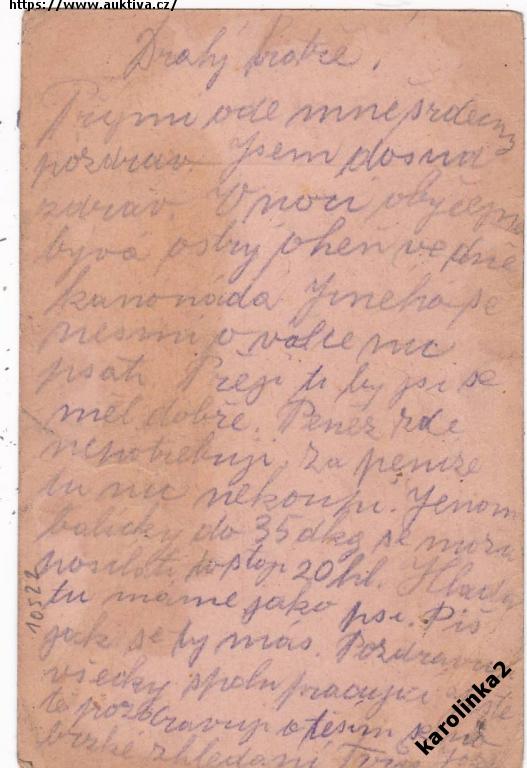 https://www.auktiva.cz/
Drahý bratře,
Přijmi ode mně srdečný
pozdrav. Jsem dosud
zdráv. V noci obyčejně
bývá ostrý oheň ve dně
kanonáda Jineho se
nesmí o válce nic
psáti. Přeji ti by jsi se
měl dobře. Peněz zde
nepotřebuji, za peníze
tu nic nekoupí. Jenom
balicky do 35 dkg se mužu
posilati postop 20 hil. Hladu
tu máme jako psi. Piš
jak se ty máš. Pozdravuj
všecky spolu pracující
te pozdravuji a těším se na
brzké shledání Tvůj
10522
karolinka2